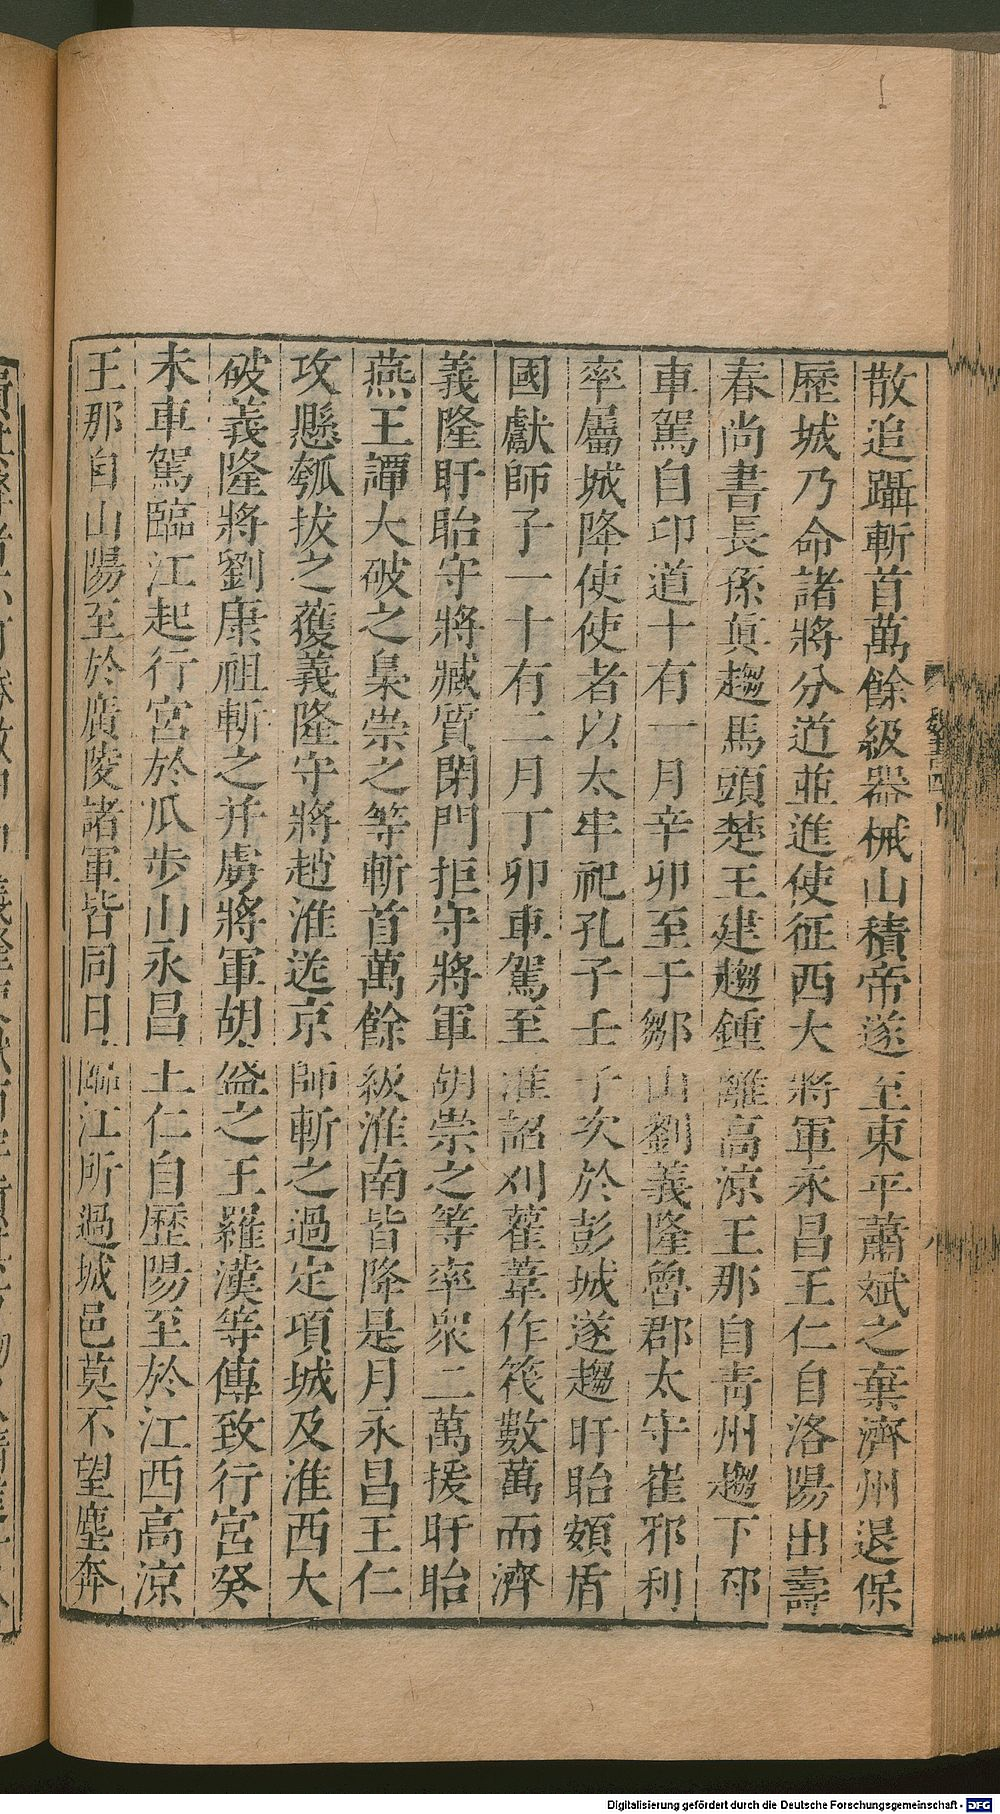 散追躡斬首萬餘級器械山積帝遂至東平蕭斌之棄濟州退保
歷城乃命諸將分道並進使征西大將軍永昌王仁自洛陽出壽
春尚書長孫眞趨馬頭楚王建趨鍾離高涼王那自青州趨下邳
車駕自印道十有一月辛卯至于鄒山劉義隆魯郡太守崔邪利
率屬城降使使者以太牢祀孔子壬子次於彭城遂趨盱眙頞盾
國獻師子一十有二月丁卯車駕至淮詔刈雚葦作筏數萬而濟
義隆盱眙守將臧質閉門拒守將軍胡崇之等率衆二萬援盱眙
燕王譚大破之梟崇之等斬首萬餘級淮南皆降是月永昌王仁
攻懸瓠拔之獲義隆守將趙淮送京師斬之過定項城及淮西大
破義隆將劉康祖斬之并虜將軍胡盛之王羅漢等傳致行宮癸
未車駕臨江起行宮於瓜步山永昌土仁自歷陽至於江西高涼
王那自山陽至於廣陵諸軍皆同日臨江所過城邑莫不望塵奔
魏書四下
八
Digitalisierung gefördert durch die Deutsche Forschungsgemeinschaft - DFG